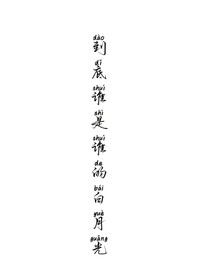 dào
到
dǐ
底
shuí
谁
shì
是
shuí
谁
de
的
bái
白
yuè
月
guāng
光